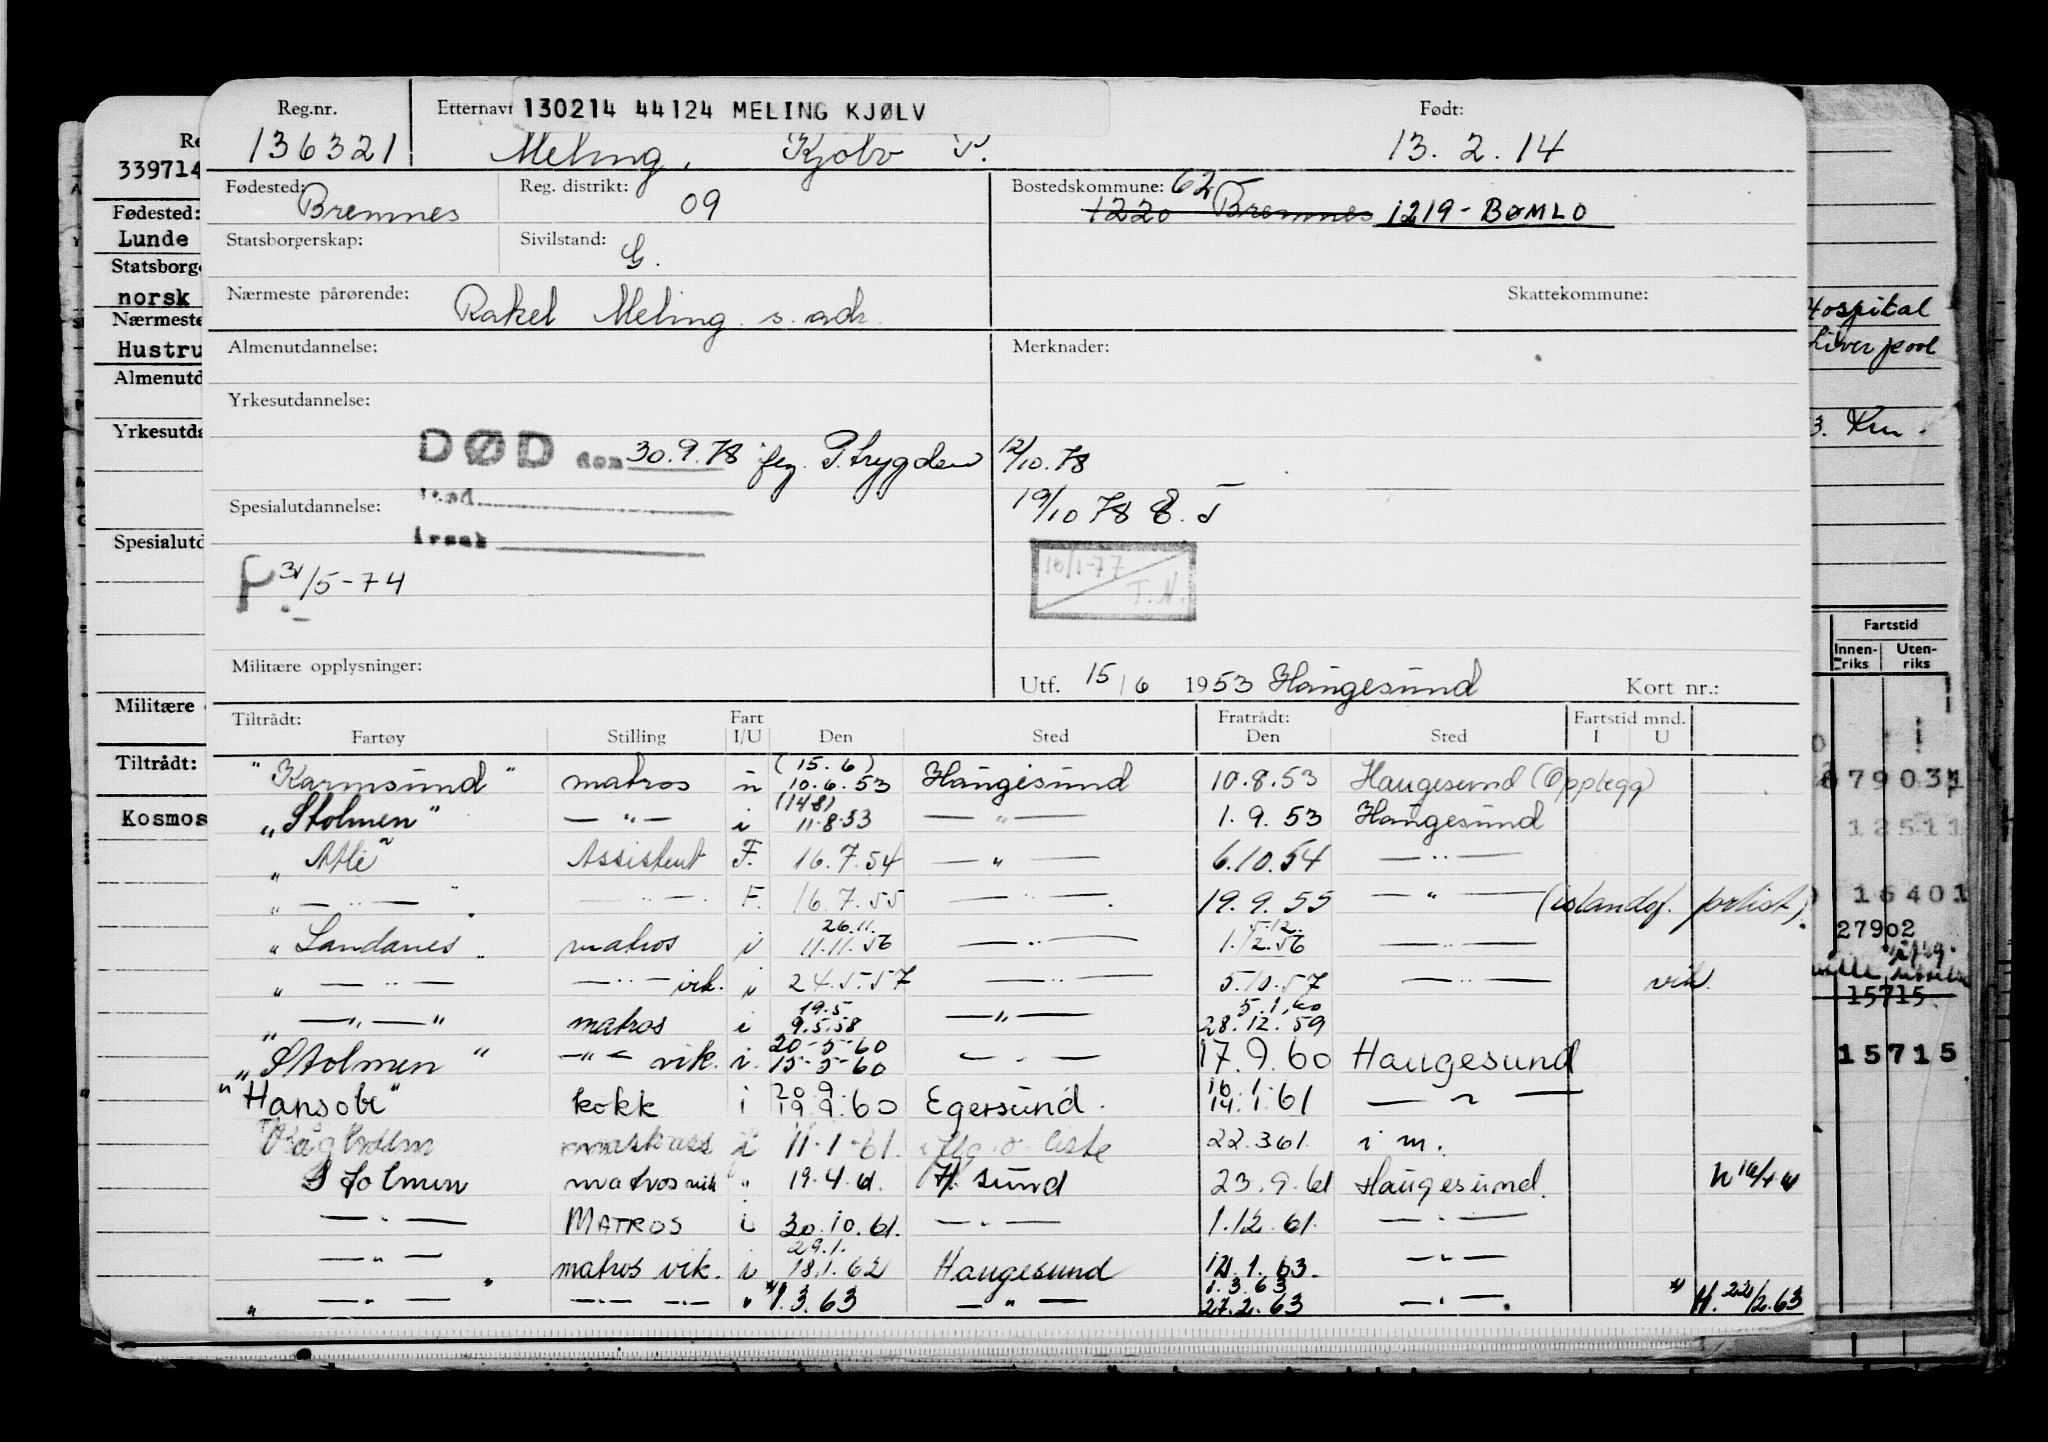 Reg.nr. Etternavn 130214 44124 MELING KJØLV Født:
136321 Meling, Kjølv T. 13. 2. 14
Fødested: Bremnes Reg. distrikt: 09 Bostedskommune: 62
1220 Bremnes 1219 - BØMLO
Statsborgerskap: Sivilstand: G.
Nærmeste pårørende: Rakel Meling s. adr. Skattekommune:
Almenutdannelse: Merknader:
Yrkesutdannelse:
DØD den 30.9.78 flg. P.trygden 12/10.78
Sted
Spesialutdannelse: 19/10 78
årsak
F 31/5-74
10/1-77 T.N.
Militære opplysninger: Utf. 15/6 1953 Haugesund Kort nr.:
Tiltrådt: Fart Fratrådt: Fartstid mnd.
Fartøy Stilling I/U Den Sted Den Sted I U
(15.6)
"Karmsund" matros u 10.6.53 Haugesund 10.8.53 Haugesund (Opplegg)
(14.8)
"Stolmen" — " — i 11.8.53 — " — 1.9.53 Haugesund
"Atle" Assistent F. 16.7.54 — " — 6.10.54 — " —
" — " — " — " — F. 16.7.55 — " — 19.9.55 — " — (islandsf. prlist.)
26.11. 5.12.
"Sandanes" matros i 11.11.56 — " — 1.12.56 — " —
" — " — — " — vik. i 24.5.57 — " — 5.10.57 — " — vik.
19.5 5.1.60
" — " — " matros i 9.5.58 — " — 28.12.59
20-5-60
"Stolmen" — " — vik. i. 15-5-60 — " — 17.9.60 Haugesund
20.9. 16.1.
"Hansobe" kokk i 19.9.60 Egersund. 14.1.61 — " —
Vågholm i 11-1-61. liste 22.3.61. i m.
Stolmen matros vik " 19.4.61. H.sund 23.9.61 Haugesund.
— " — MATROS i 30.10.61. — " — 1.12.61. — " —
29.1.
— " — matros vik. i 18.1.62 Haugesund 12.1.63. — " —
1.3.63
" — " — — " — " — " 1.3.63 — " — 27.2.63 — " — H. 22/2.63
339714
Fødested:
Lunde
norsk
Nærmeste
Hustru
Militære
Tiltrådt:
Kosmos
Hospital
Liverpool
Fartstid
Innen-riks Uten-riks
79031
12511
16401
27902
15715
15715